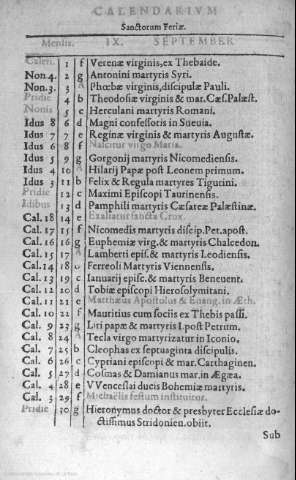 CALENDARIVM
Sanctorum Feriæ.
Mensis. IX. SEPTEMBER
Calen. 1 f Verenæ virginis, ex Thebaide.
Non. 4. 2 g Antonini martyris Syri.
Non. 3. 3 A Phœbæ virginis, discipulæ Pauli.
Pridie 4 b Theodosiæ virginis & mar. Cæs. Palæst.
Nonis 5 c Herculani martyris Romani.
Idus 8 6 d Magni confessoris in Sueuia.
Idus 7 7 e Reginæ virginis & martyris Augustæ.
Idus 6 8 f Nascitur virgo Maria.
Idus 5 9 g Gorgonij martyris Nicomediensis.
Idus 4 10 A Hilarij Papæ post Leonem primum.
Idus 3 11 b Felix & Regula martyres Tigurini.
Pridie 12 c Maximi Episcopi Taurinensis.
Idibus 13 d Pamphili martyris Cæsareæ Palæstinæ.
Cal. 18 14 e Exaltatur sancta Crux.
Cal. 17 15 f Nicomedis martyris discip. Pet. apost.
Cal. 16 16 g Euphemiæ virg. & martyris Chalcedon.
Cal. 15 17 A Lamberti epis. & martyris Leodiensis.
Cal. 14 18 b Ferreoli Martyris Viennensis.
Cal. 13 19 c Ianuarij epis. & martyris Beneuent.
Cal. 12 20 d Tobiæ episcopi Hierosolymitani.
Cal. 11 21 e Matthæus Apostolus & Euang. in Æth.
Cal. 10 22 f Mauritius cum sociis ex Thebis passi.
Cal. 9 23 g Lini papæ & martyris I. post Petrum.
Cal. 8 24 A Tecla virgo martyrizatur in Iconio.
Cal. 7 25 b Cleophas ex septuaginta discipulis.
Cal. 6 26 c Cypriani episcopi & mar. Carthaginen.
Cal. 5 27 d Cosmas & Damianus mar. in Ægæa.
Cal. 4 28 e VVenceslai ducis Bohemiæ martyris.
Cal. 3 29 f Michaëlis festum instituitur.
Pridie 30 g Hieronymus doctor & presbyter Ecclesiæ do-
ctissimus Stridonien. obiit.
Sub